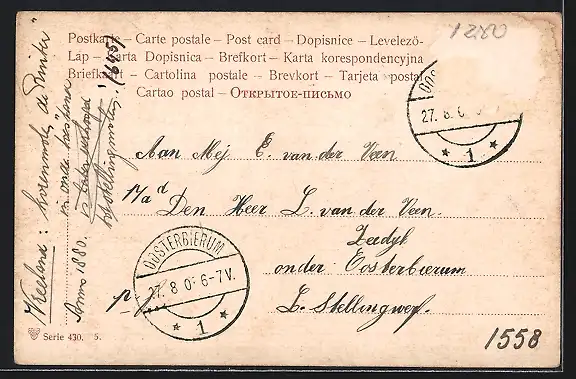 Postkarte – Carte postale – Post card – Dopisnice – Levelező-
Lap – Carta Dopisnica – Brefkort – Karta korespondencyjna
Briefkaart – Cartolina postale – Brevkort – Tarjeta postal
Cartao postal – Открытое-письмо
1280
27. 8. 0
1
Aan Mej E. van der Veen
p/ad Den Heer L. van der Veen.
Zeedyk
onder Oosterbierum
L. Stellingwerf.
OOSTERBIERUM
27. 8 0 6-7V.
1
Vreeland: Korenmolen de Ruiter
Anno 1880.
(1695)
Serie 430. 5.
1558